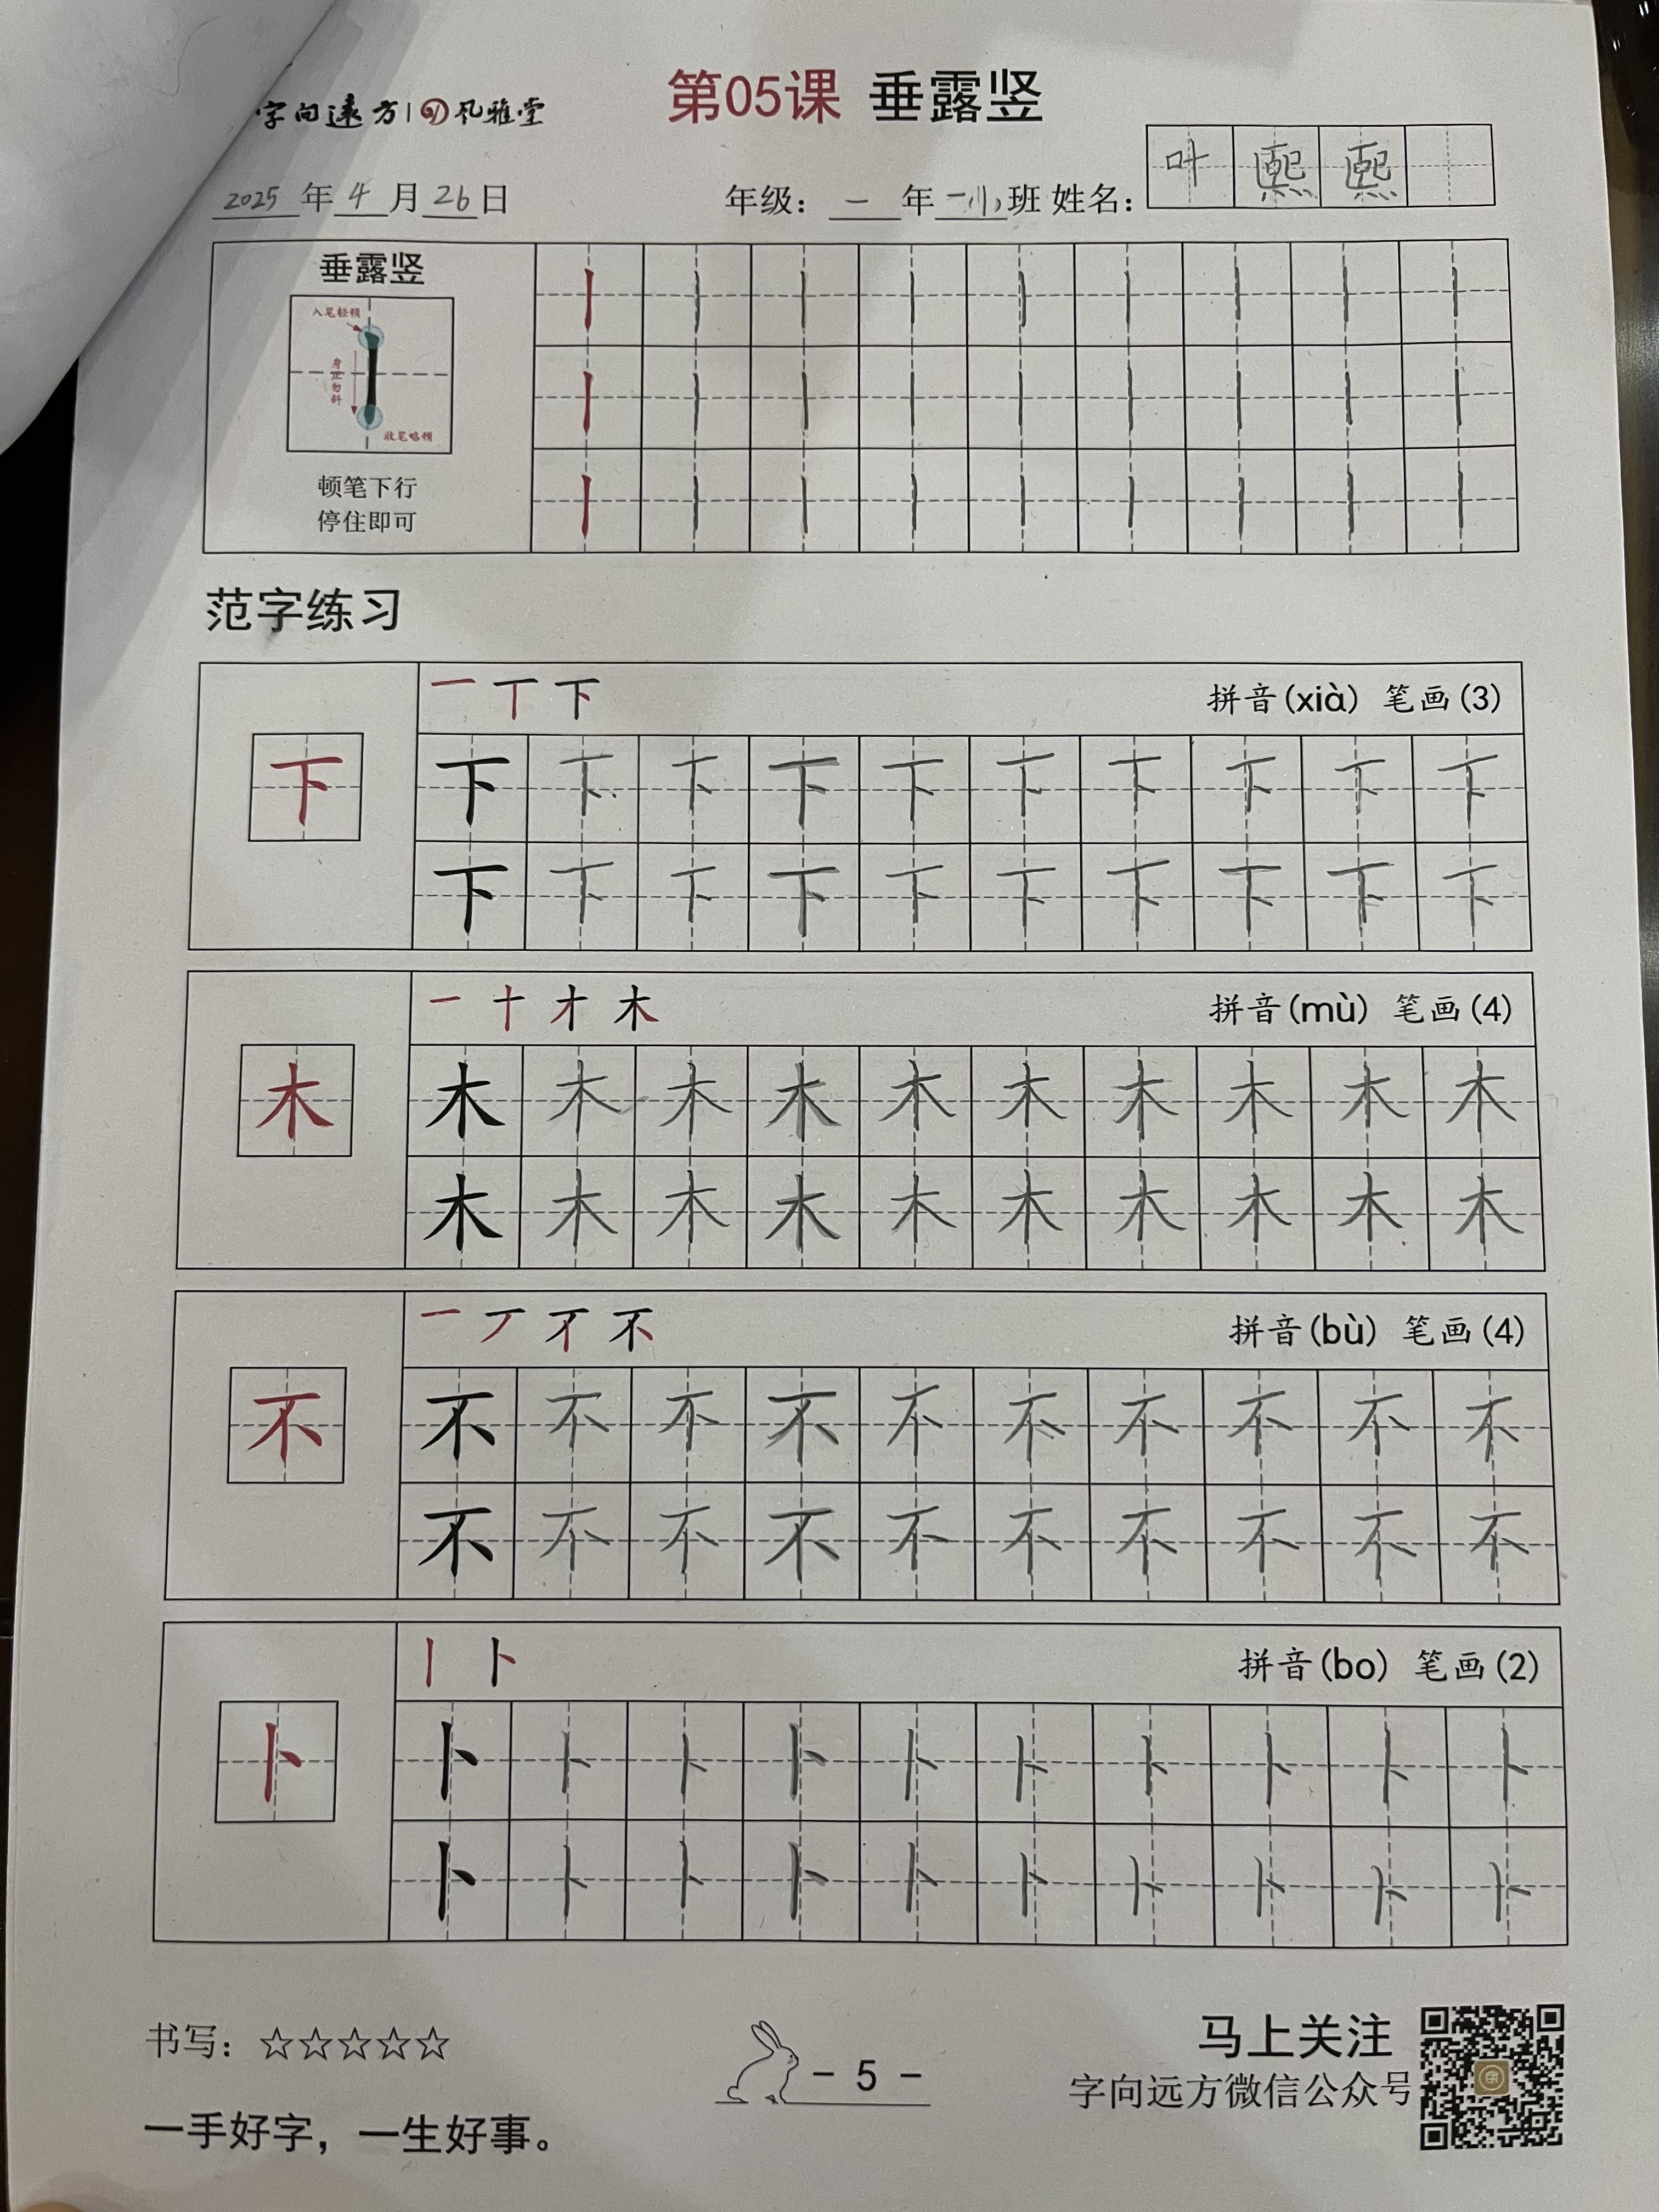 字向遠方 风雅堂
第05课 垂露竖
2025年4月26日 年级：一年一(1)班 姓名：叶熙熙
垂露竖
入笔轻顿
身正勿斜
收笔略顿
顿笔下行
停住即可
范字练习
一 丅 下 拼音(xià) 笔画(3)
下 下 下 下 下 下 下 下 下 下 下
下 下 下 下 下 下 下 下 下 下
一 十 才 木 拼音(mù) 笔画(4)
木 木 木 木 木 木 木 木 木 木 木
木 木 木 木 木 木 木 木 木 木
一 丆 不 拼音(bù) 笔画(4)
不 不 不 不 不 不 不 不 不 不 不
不 不 不 不 不 不 不 不 不 不
丨 卜 拼音(bo) 笔画(2)
卜 卜 卜 卜 卜 卜 卜 卜 卜 卜 卜
卜 卜 卜 卜 卜 卜 卜 卜 卜 卜
书写：☆☆☆☆☆
一手好字，一生好事。
- 5 -
马上关注
字向远方微信公众号